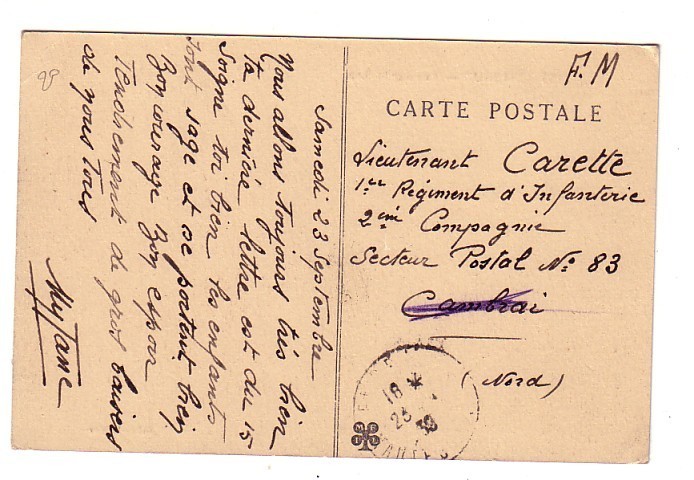 Samedi 23 Septembre
Nous allons toujours très bien
ta dernière lettre est du 15
Soigne toi bien les enfants
sont sage et se portent bien
Bon courage Bon espoir
Tendrement de gros baisers
de nous tous
F.M
CARTE POSTALE
Lieutenant Carette
1er Régiment d'Infanterie
2ème Compagnie
Secteur Postal No 83
Cambrai
(Nord)
16 *
23
39